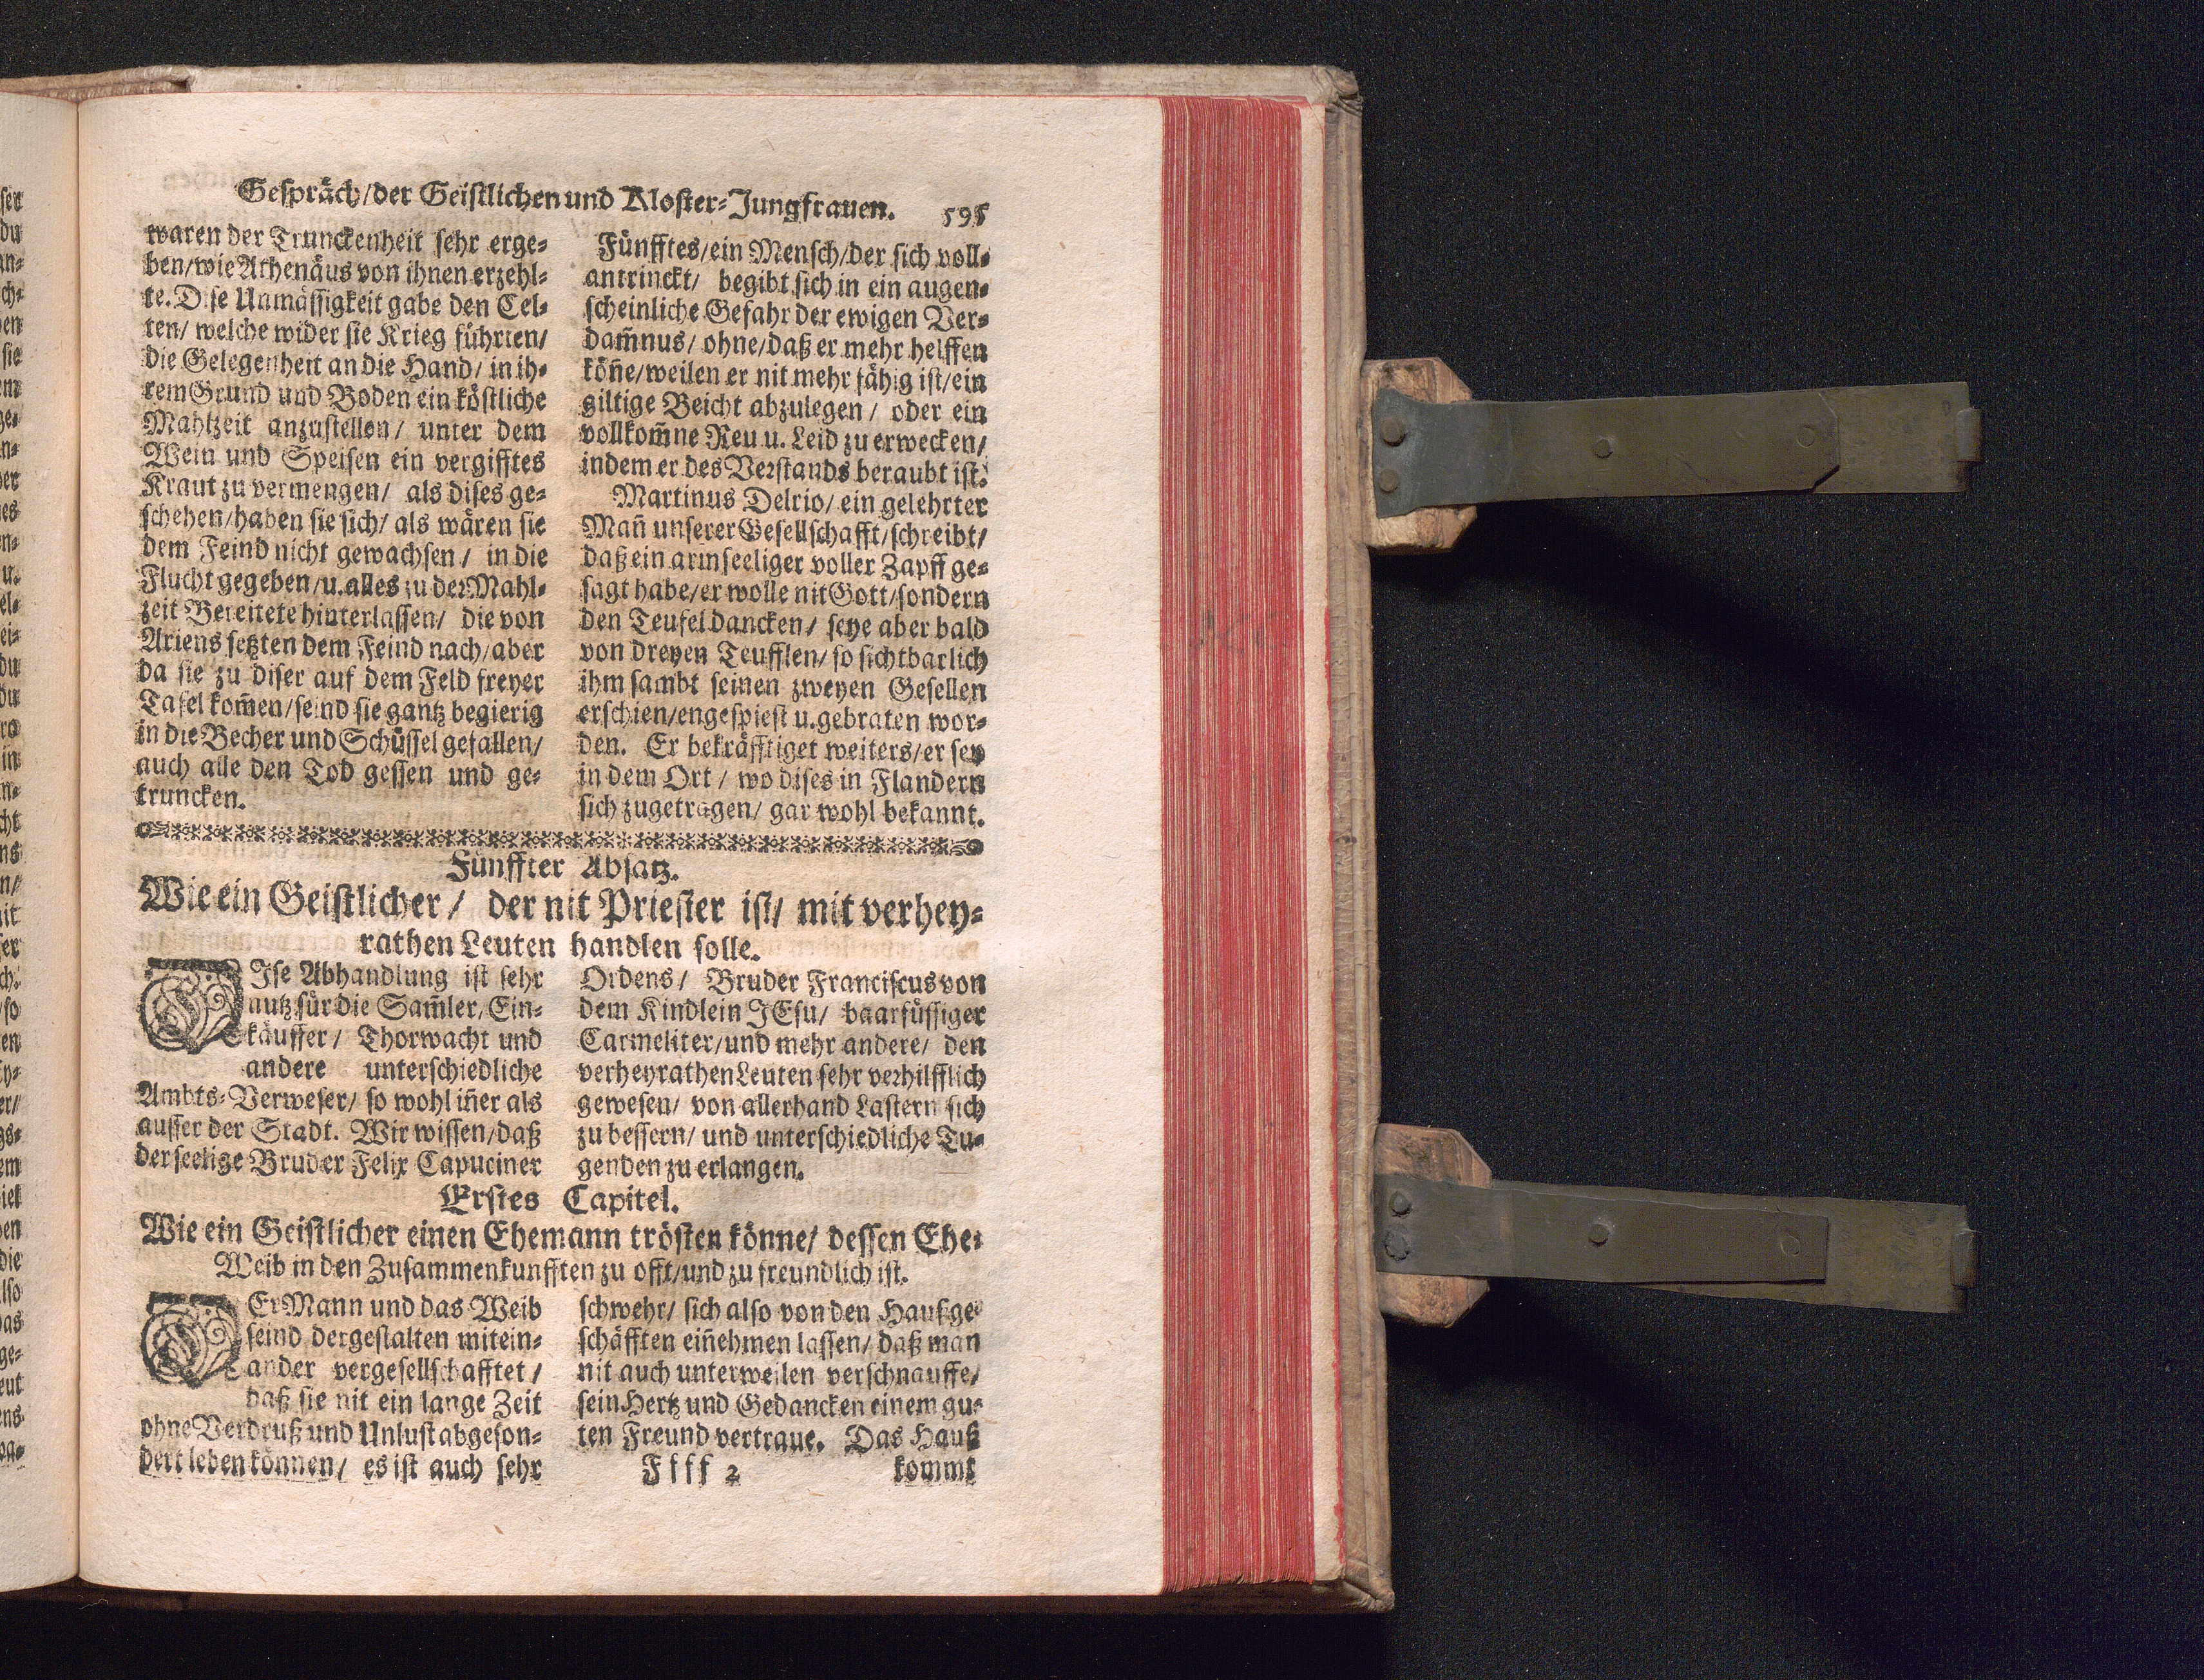 Gespräch/der Geistlichen und Kloster-Jungfrauen. 595
waren der Trunckenheit sehr erge-
ben/wie Athenäus von ihnen erzehl-
te. Dise Unmässigkeit gabe den Cel-
ten/ welche wider sie Krieg führten/
die Gelegenheit an die Hand/ in ih-
rem Grund und Boden ein köstliche
Mahlzeit anzustellen/ unter dem
Wein und Speisen ein vergifftes
Kraut zu vermengen/ als dises ge-
schehen/haben sie sich/ als wären sie
dem Feind nicht gewachsen/ in die
Flucht gegeben/u. alles zu der Mahl-
zeit Bereitete hinterlassen/ die von
Ariens setzten dem Feind nach/aber
da sie zu diser auf dem Feld freyer
Tafel kom̃en/seind sie gantz begierig
in die Becher und Schüssel gefallen/
auch alle den Tod gessen und ge-
truncken.
Fünfftes/ein Mensch/der sich voll-
antrinckt/ begibt sich in ein augen-
scheinliche Gefahr der ewigen Ver-
dam̃nus/ ohne/daß er mehr helffen
köñe/weilen er nit mehr fähig ist/ein
giltige Beicht abzulegen/ oder ein
vollkom̃ne Reu u. Leid zu erwecken/
indem er des Verstands beraubt ist.
Martinus Delrio/ ein gelehrter
Mañ unserer Gesellschafft/schreibt/
daß ein armseeliger voller Zapff ge-
sagt habe/er wolle nit Gott/sondern
den Teufel dancken/ seye aber bald
von dreyen Teufflen/ so sichtbarlich
ihm sambt seinen zweyen Gesellen
erschien/engespiest u. gebraten wor-
den. Er bekräfftiget weiters/er sey
in dem Ort/ wo dises in Flandern
sich zugetragen/ gar wohl bekannt.
Fünffter Absatz.
Wie ein Geistlicher/ der nit Priester ist/ mit verhey-
rathen Leuten handlen solle.
DIse Abhandlung ist sehr
nutz für die Sam̃ler/ Ein-
käuffer/ Thorwacht und
andere unterschiedliche
Ambts-Verweser/ so wohl iñer als
ausser der Stadt. Wir wissen/daß
der seelige Bruder Felix Capuciner
Ordens/ Bruder Franciscus von
dem Kindlein JEsu/ baarfüssiger
Carmeliter/und mehr andere/ den
verheyrathen Leuten sehr verhilfflich
gewesen/ von allerhand Lastern sich
zu bessern/ und unterschiedliche Tu-
genden zu erlangen.
Erstes Capitel.
Wie ein Geistlicher einen Ehemann trösten könne/ dessen Ehe-
Weib in den Zusammenkunfften zu offt/und zu freundlich ist.
DEr Mann und das Weib
seind dergestalten mitein-
ander vergesellschafftet/
daß sie nit ein lange Zeit
ohne Verdruß und Unlust abgeson-
dert leben können/ es ist auch sehr
schwehr/ sich also von den Haußge-
schäfften eiñehmen lassen/ daß man
nit auch unterweilen verschnauffe/
sein Hertz und Gedancken einem gu-
ten Freund vertraue. Das Hauß
Ffff 2 kommt